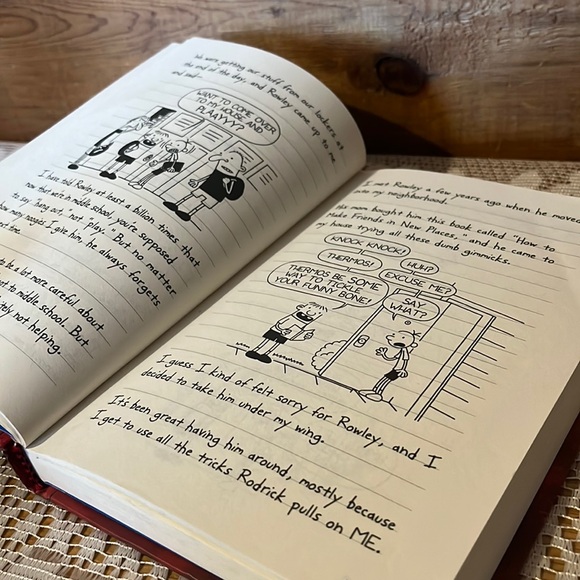 We were getting our stuff from our lockers at
the end of the day, and Rowley came up to me
and said-
WANT TO COME OVER
TO MY HOUSE AND
PLAAYYY?
I have told Rowley at least a billion times that
now that we're in middle school, you're supposed
to say "hang out," not "play." But no matter
many noogies I give him, he always forgets
time.
to be a lot more careful about
to middle school. But
not helping.
I met Rowley a few years ago when he moved
into my neighborhood.
His mom bought him this book called "How to
Make Friends in New Places," and he came to
my house trying all these dumb gimmicks.
KNOCK KNOCK!
HUH?
THERMOS!
EXCUSE ME?
THERMOS BE SOME
WAY TO TICKLE
YOUR FUNNY BONE!
SAY
WHAT?
I guess I kind of felt sorry for Rowley, and I
decided to take him under my wing.
It's been great having him around, mostly because
I get to use all the tricks Rodrick pulls on ME.